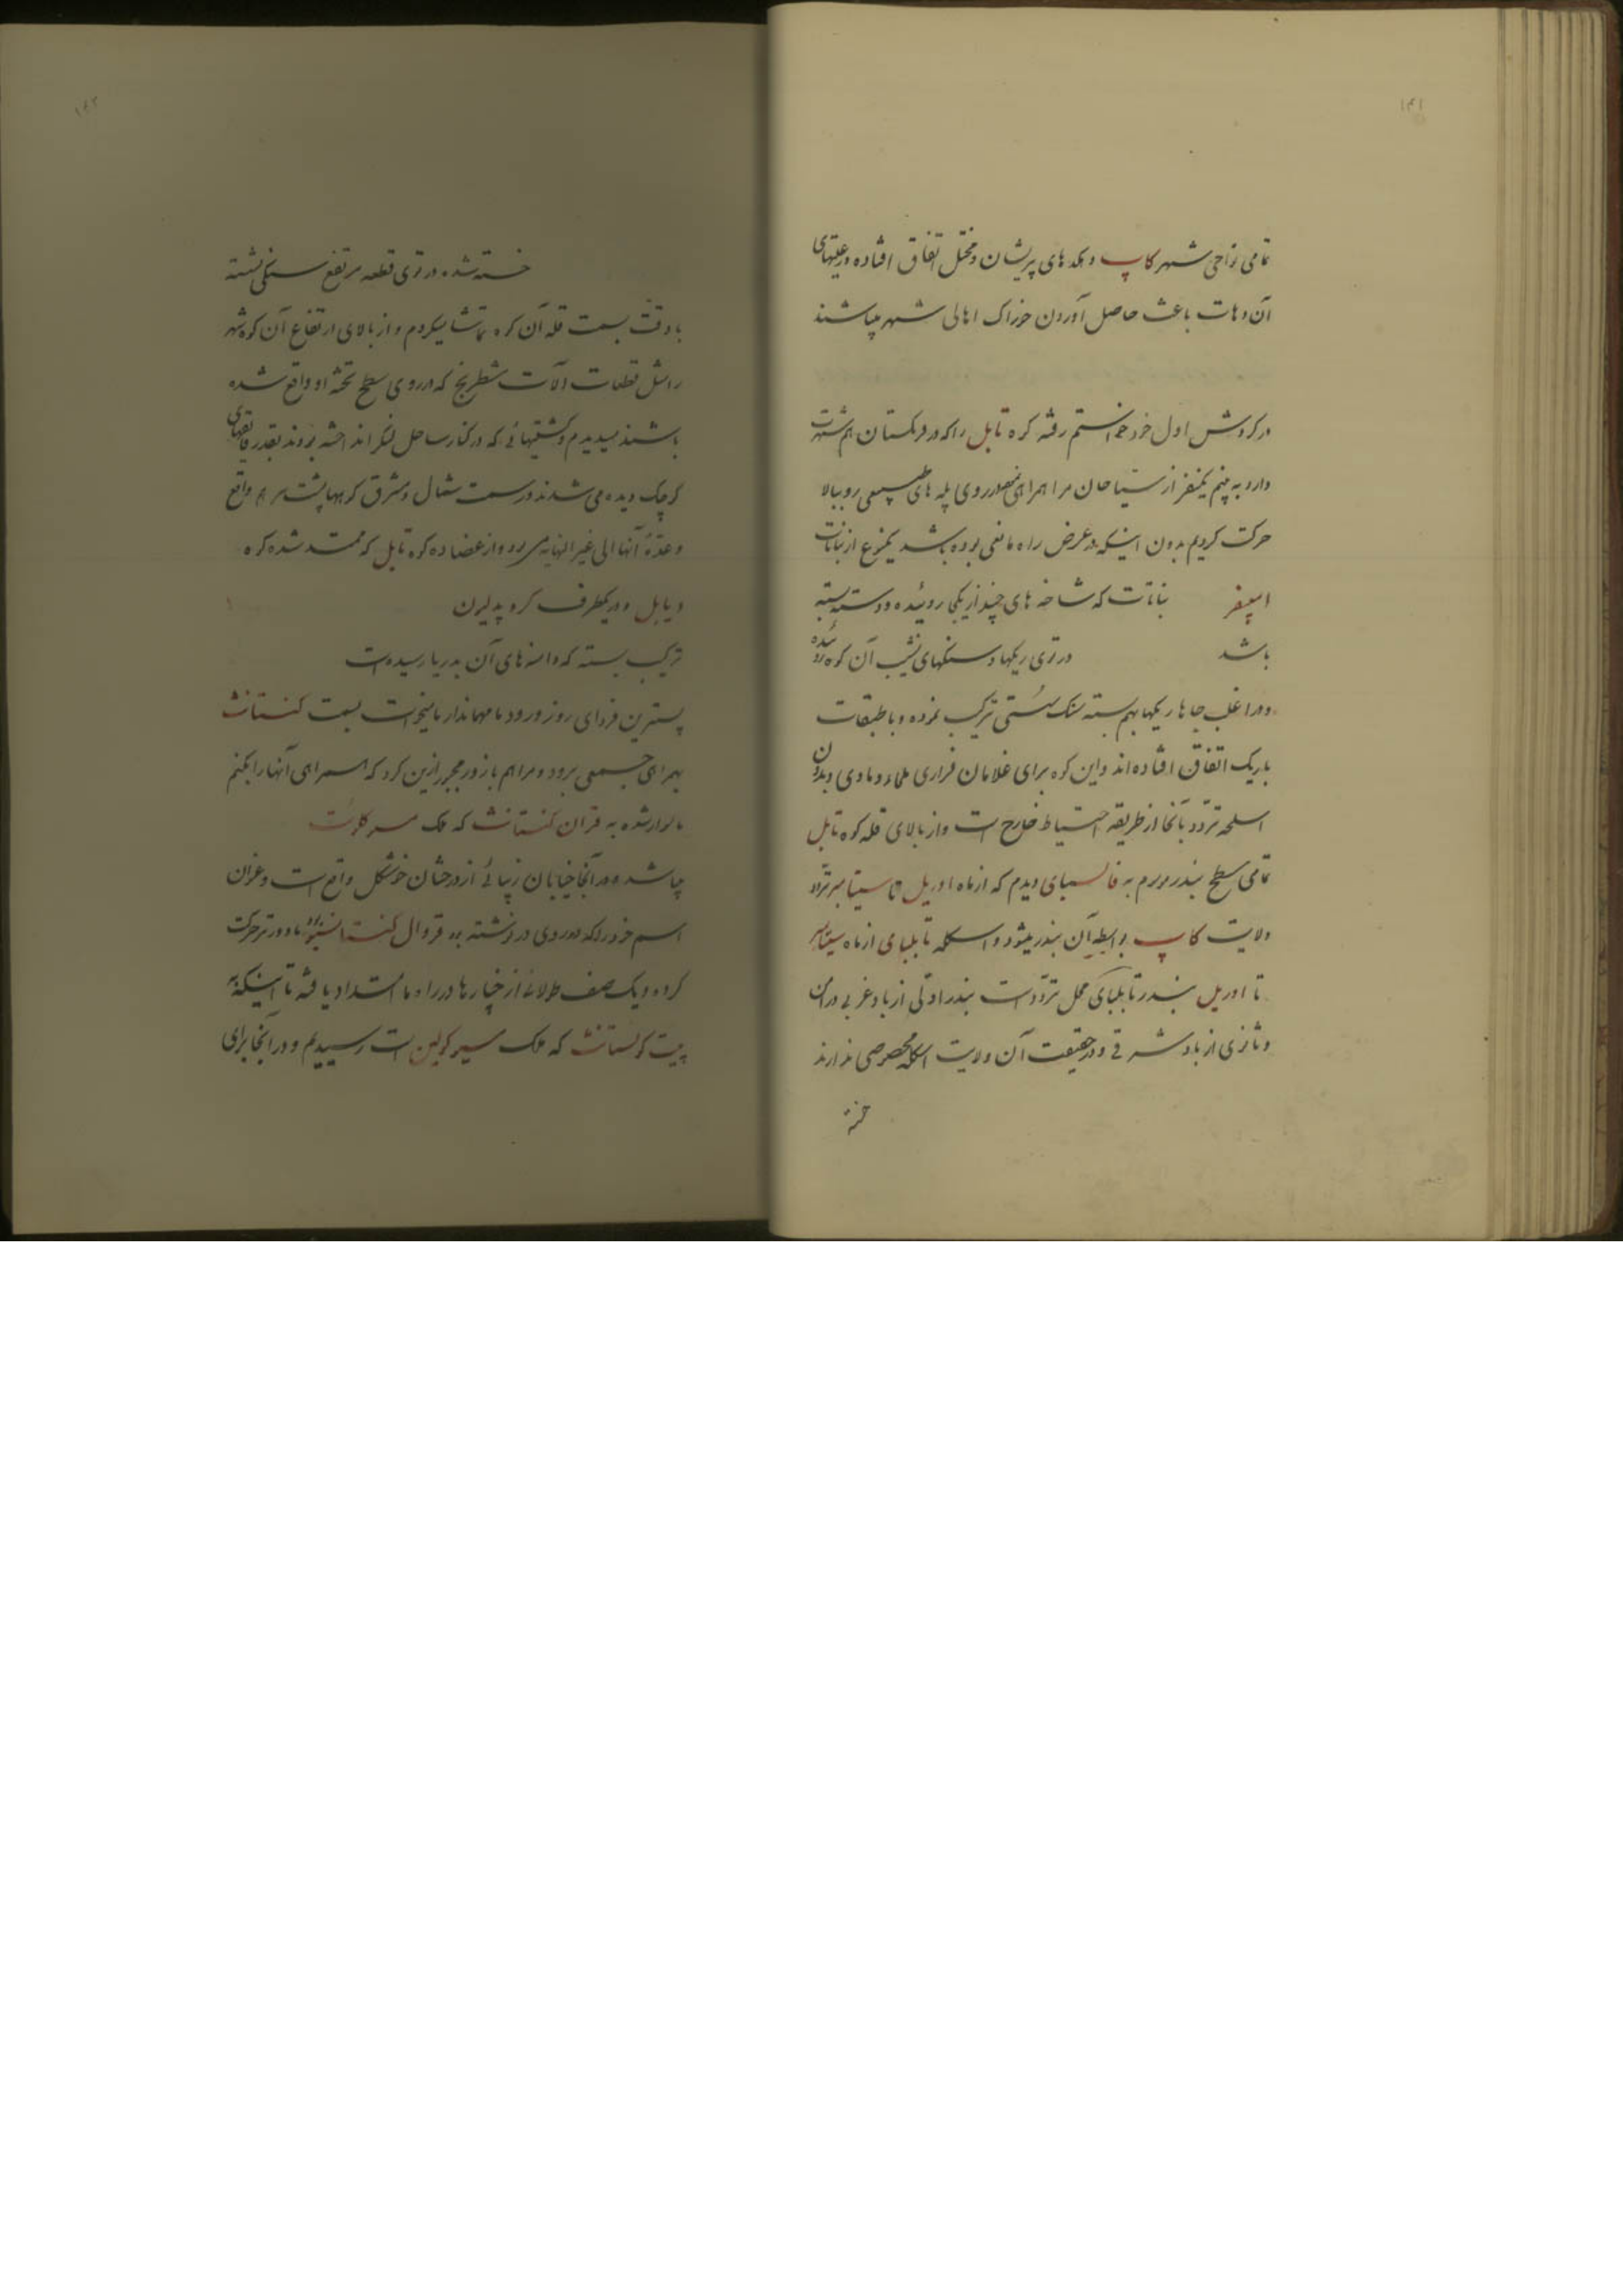 ۱۴۱
تمامی نواحی شهر کاپ دهکده‌های پریشان و مختل اتفاق افتاده و رعیتهای
آن دهات باعث حاصل آوردن خوراک اهالی شهر میباشند
در گردش اول خود خواستم رفته کوه تابل را که در فرنگستان هم شهرت
دارد به بینم یکنفر از سیاحان مرا همراهی نمود در روی پله های طبیعی رو ببالا
حرکت کردیم بدون اینکه در عرض راه مانعی بوده باشد یکنوع از نباتات
نباتات که شاخه های چند از یکجا روئیده و دسته بسته
باشد در توی ریکها و سنکهای نشیب آن کوه روئیده
و در اغلب جاها ریکها بهم بسته سنک سستی ترکیب نموده و با طبقات
باریک اتفاق افتاده‌اند و این کوه برای غلامان فراری ملجاء و مادی و بدون
اسلحه تردد بآنجا از طریقه احتیاط خارج است و از بالای قله کوه تابل
تمامی سطح بندر مزبور به فالسبای دیدم که از ماه اوریل تا سیتامبر تردد
ولایت کاپ بواسطه آن بندر میشود و اسکله تابلبای از ماه سیتامبر
تا اوریل بندر تابلبای محل تردد است بندر اولی از باد غربی در امن
و ثانوی از باد شرقی و در حقیقت آن ولایت اسکله مخصوصی ندارند
خسته
۱۴۲
خسته شده در توی قطعه مرتفع سنکی نشسته
با دقت بسمت قله آن کوه تماشا میکردم و از بالای ارتفاع آن کوه شهر
را مثل قطعات و آلات شطرنج که در روی سطح تخته او واقع شده
باشند میدیدم و کشتیهائی که در کنار ساحل لنکر انداخته بودند بقدر قایقهای
کوچک دیده می شدند در سمت شمال و مشرق کوهها پشت سر هم واقع
و عدّهٔ آنها الی غیر النهایه می رود و از عضاده کوه تابل که ممتد شده کوه
دیابل و در یکطرف کروپ دلیون
ترکیب بسته که دامنه های آن بدریا رسیده است
پسترین فردای روز ورود ما مهماندار ما میخواست بسمت کنستانث
بهمراهی جمعی برود و مرا هم بازور مجبور ازین کرد که همراهی آنها را بکنم
ما سوار شده به قران کنستانث که ملک مسیر کلوت
میباشد و در آنجا خیابان زیبائی از درختان خوشکل واقع است و عنوان
اسم خود را که در روی در نوشته بود قروال کنستانس بود ما دورتر حرکت
کرده و یک صف طولانی از خیابانها در راه ما امتداد یافته تا اینکه به
پیت کونستانث که ملک مسیر کولین است رسیدیم و در آنجا برای